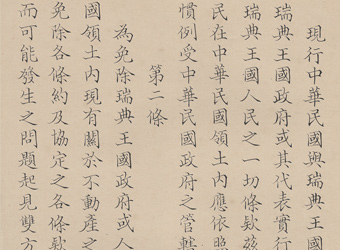 現行中華民國與瑞典王國
瑞典王國政府或其代表實行
瑞典王國人民之一切條款茲
民在中華民國領土內應依照
慣例受中華民國政府之管轄
第二條
為免除瑞典王國政府或人
國領土內現有關於不動產之
免除各條約及協定之各條款
而可能發生之問題起見雙方